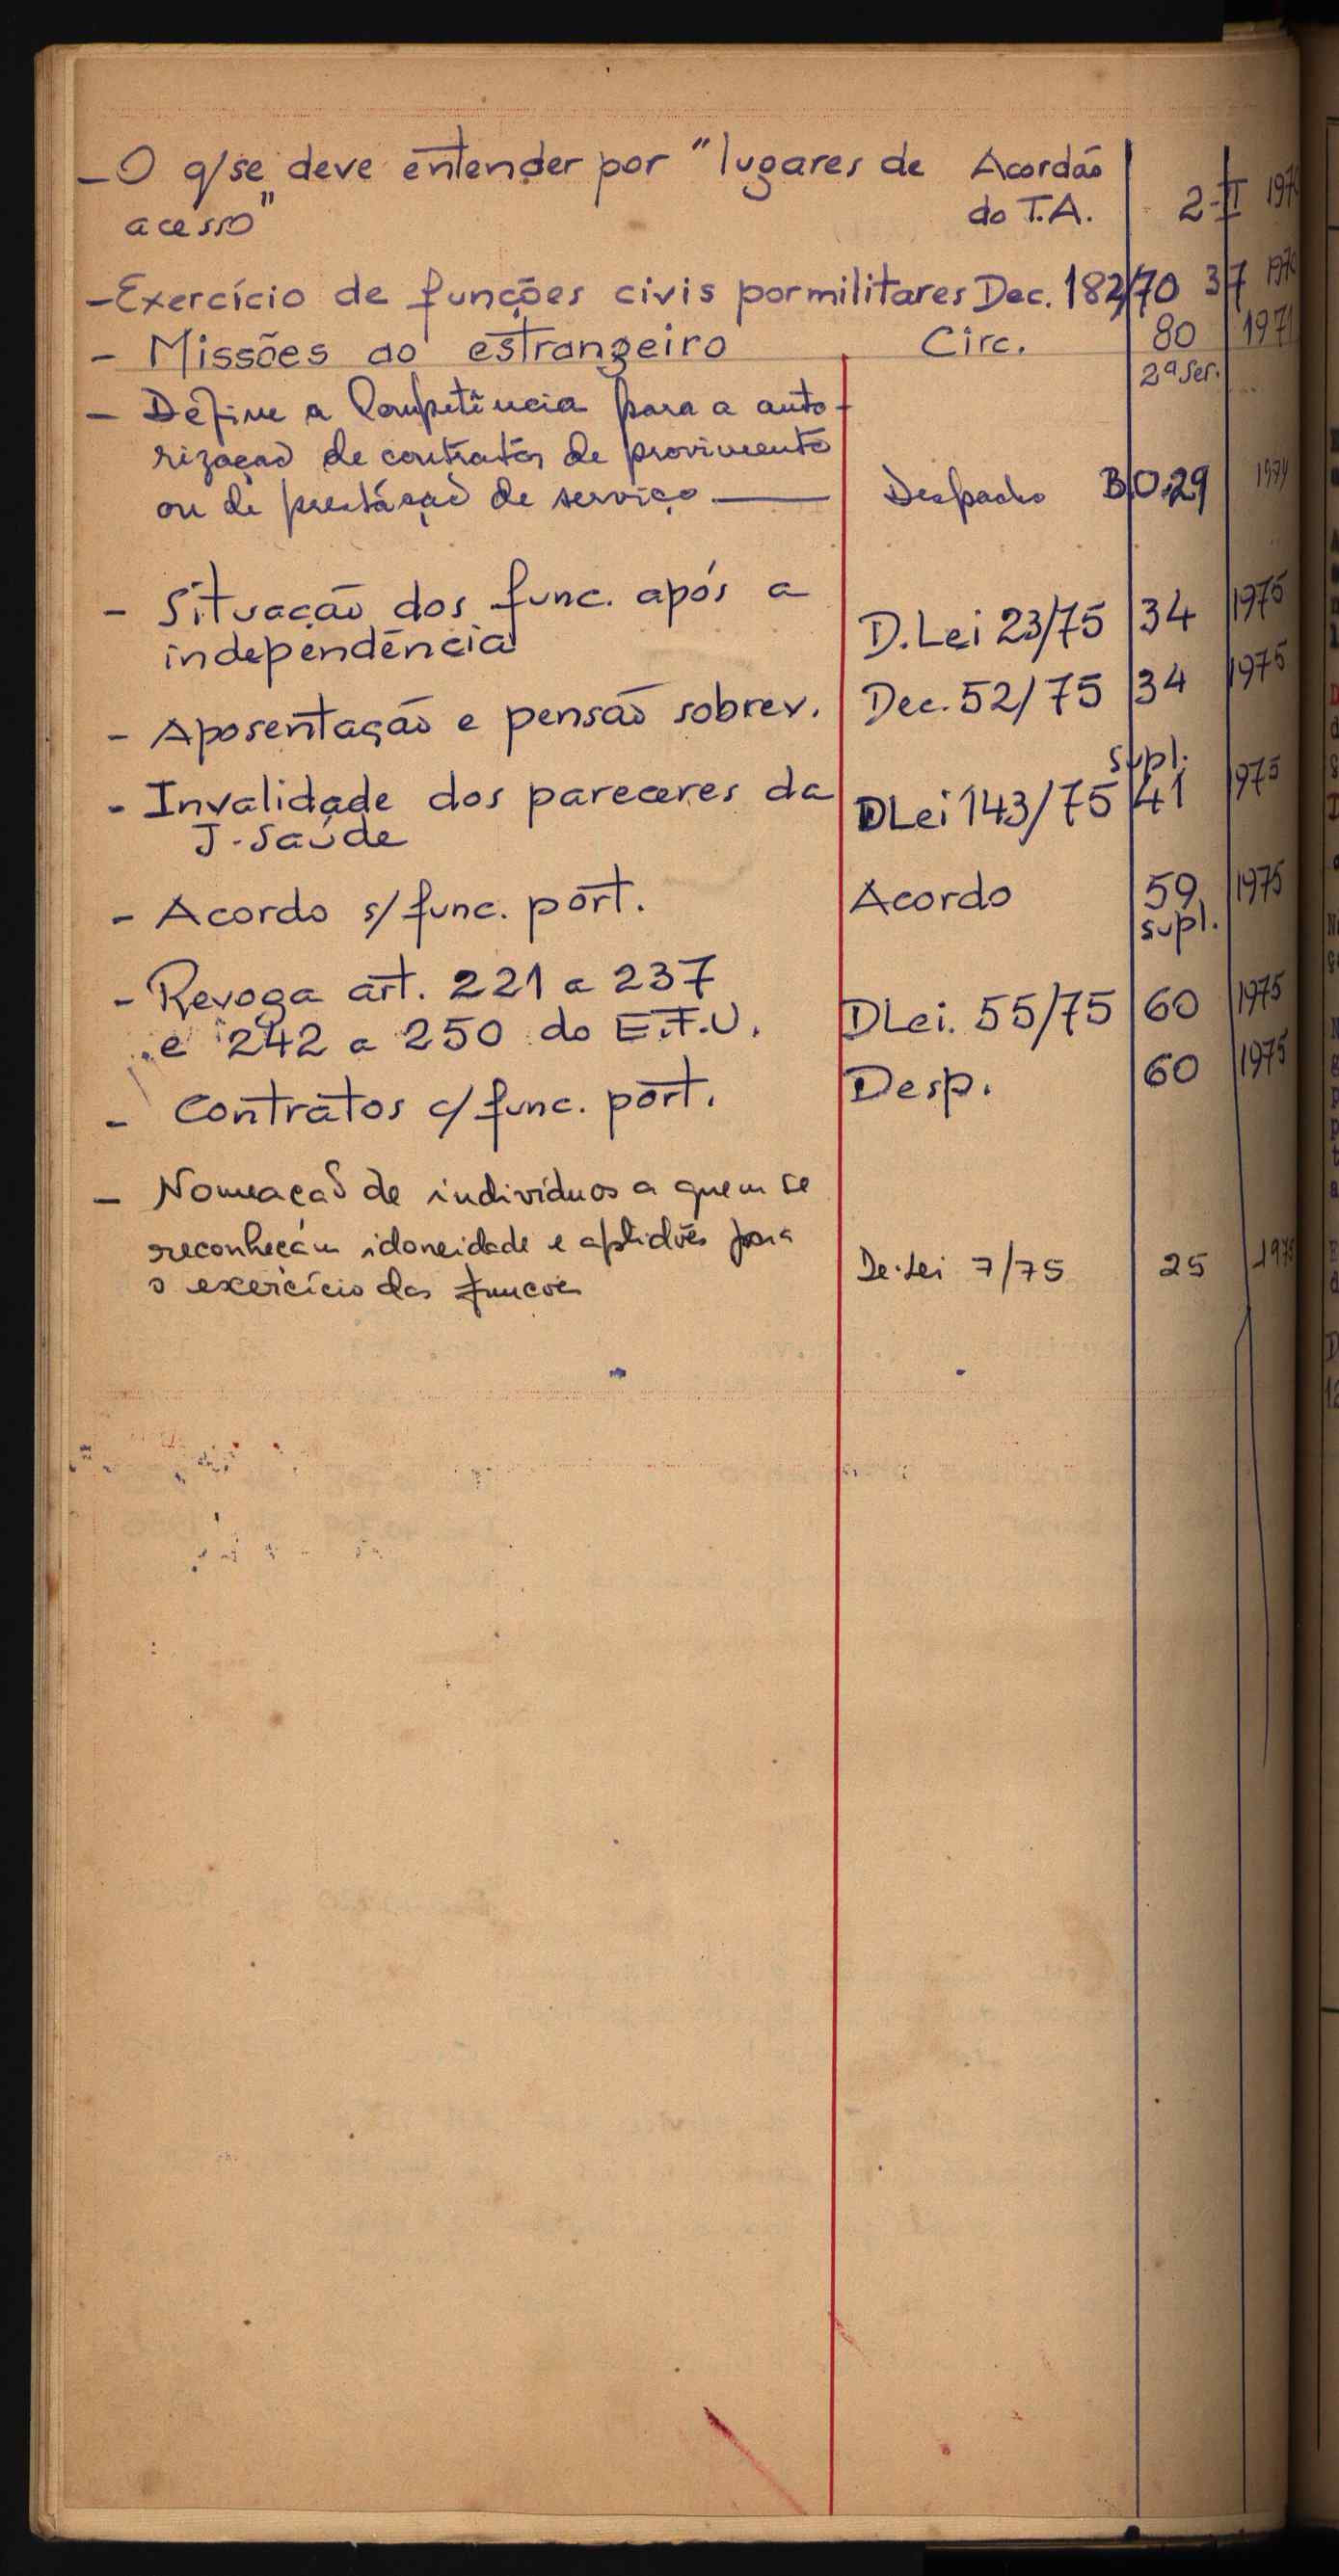 - O q/se deve entender por "lugares de Acordão
acesso" do T.A. 2-II 1970
- Exercício de funções civis por militares Dec. 182/70 37 1970
- Missões ao estrangeiro Circ. 80 1971
2ª Ser.
- Define a Competência para a auto-
rização de contratos de provimento
ou de prestação de serviço — Despacho B.O.29 1974
- Situação dos func. após a
independência D.Lei 23/75 34 1975
- Aposentação e pensão sobrev. Dec. 52/75 34 1975
supl.
- Invalidade dos pareceres da DLei 143/75 41 1975
J. Saúde
- Acordo s/ func. port. Acordo 59 1975
supl.
- Revoga art. 221 a 237
e 242 a 250 do E.F.U. DLei. 55/75 60 1975
- Contratos c/ func. port. Desp. 60 1975
- Nomeação de indivíduos a quem se
reconheçam idoneidade e aptidões para
o exercício das funções De.Lei 7/75 25 1975